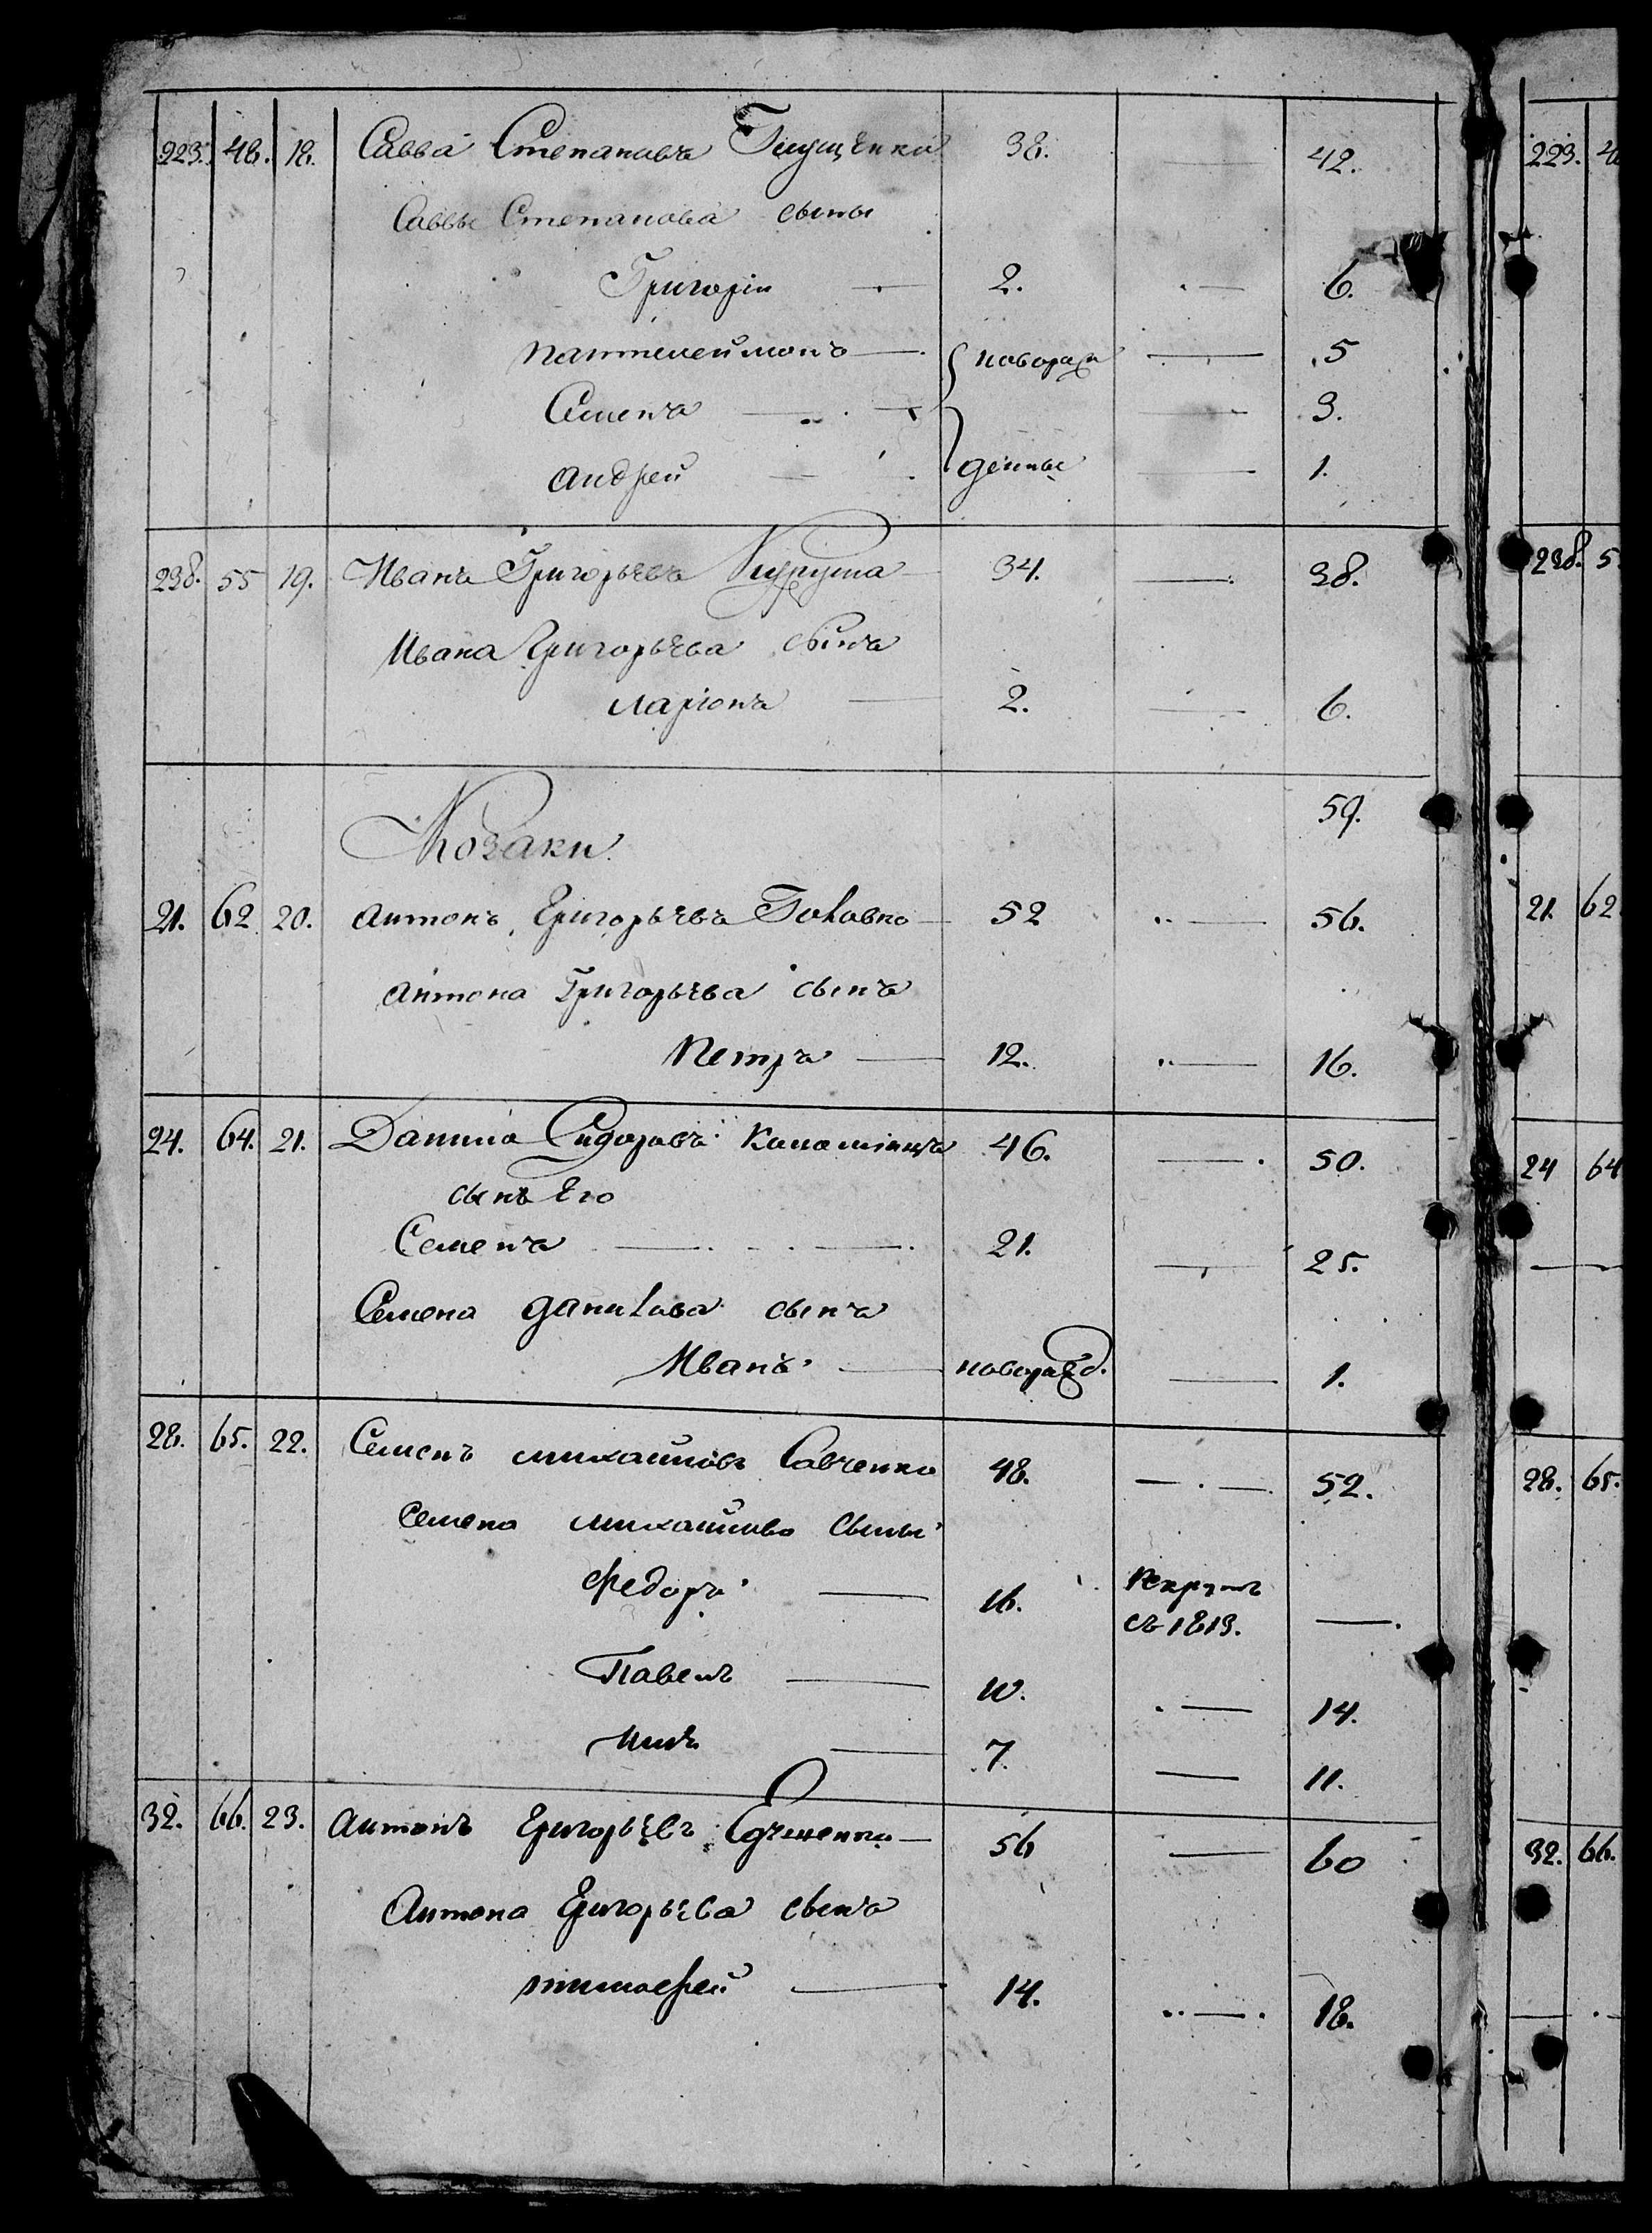 223. 48. 18. Савва Степановъ Глущенко 38. — 42.
Саввы Степанова сыны
Григорій — 2. — 6.
Пантелеймонъ — новорож — 5
Семенъ — — 3.
Андрей — денные — 1.
238. 55 19. Иванъ Григорьевъ — 34. — 38.
Ивана Григорьева сынъ
Ларіонъ — 2. — 6.
59.
Козаки
21. 62 20. Антонъ Григорьевъ Головко — 52 — 56.
Антона Григорьева сынъ
Петръ — 12. — 16.
24. 64. 21. Данило Сидоровъ Коломіецъ 46. — 50.
сынъ Его
Семенъ — — 21. — 25.
Семена Данилова сынъ
Иванъ — новорожд. — 1.
28. 65. 22. Семенъ Михайловъ Савченко 48. — 52.
Семена Михайлова сыны
Федоръ — 16. Рекрутъ съ 1813. —
Павелъ — 10. — 14.
— 7. — 11.
32. 66. 23. Антонъ Григорьевъ — 56 — 60
Антона Григорьева сынъ
Тимофей — 14. — 18.
223.
238. 5
21. 62
24 64
28. 65.
32. 66.